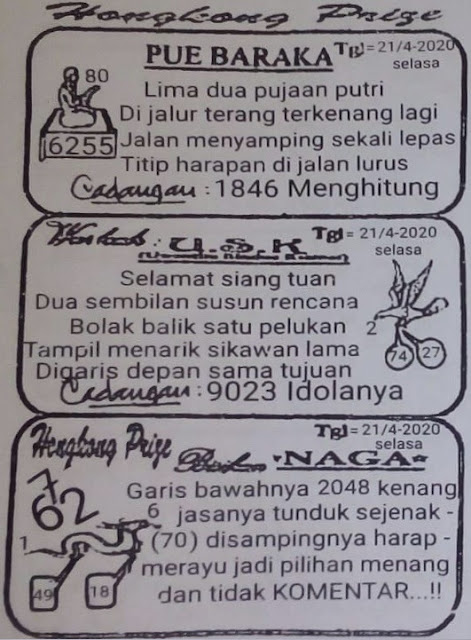 Hongkong Prize
PUE BARAKA Tgl = 21/4-2020
selasa
80
6255
Lima dua pujaan putri
Di jalur terang terkenang lagi
Jalan menyamping sekali lepas
Titip harapan di jalan lurus
Cadangan : 1846 Menghitung
U.S.K Tgl = 21/4-2020
selasa
Selamat siang tuan
Dua sembilan susun rencana
Bolak balik satu pelukan
Tampil menarik sikawan lama
Digaris depan sama tujuan
Cadangan : 9023 Idolanya
2
74 27
Hongkong Prize NAGA Tgl = 21/4-2020
selasa
7
62
6
1
49 18
Garis bawahnya 2048 kenang
jasanya tunduk sejenak -
(70) disampingnya harap -
merayu jadi pilihan menang
dan tidak KOMENTAR...!!